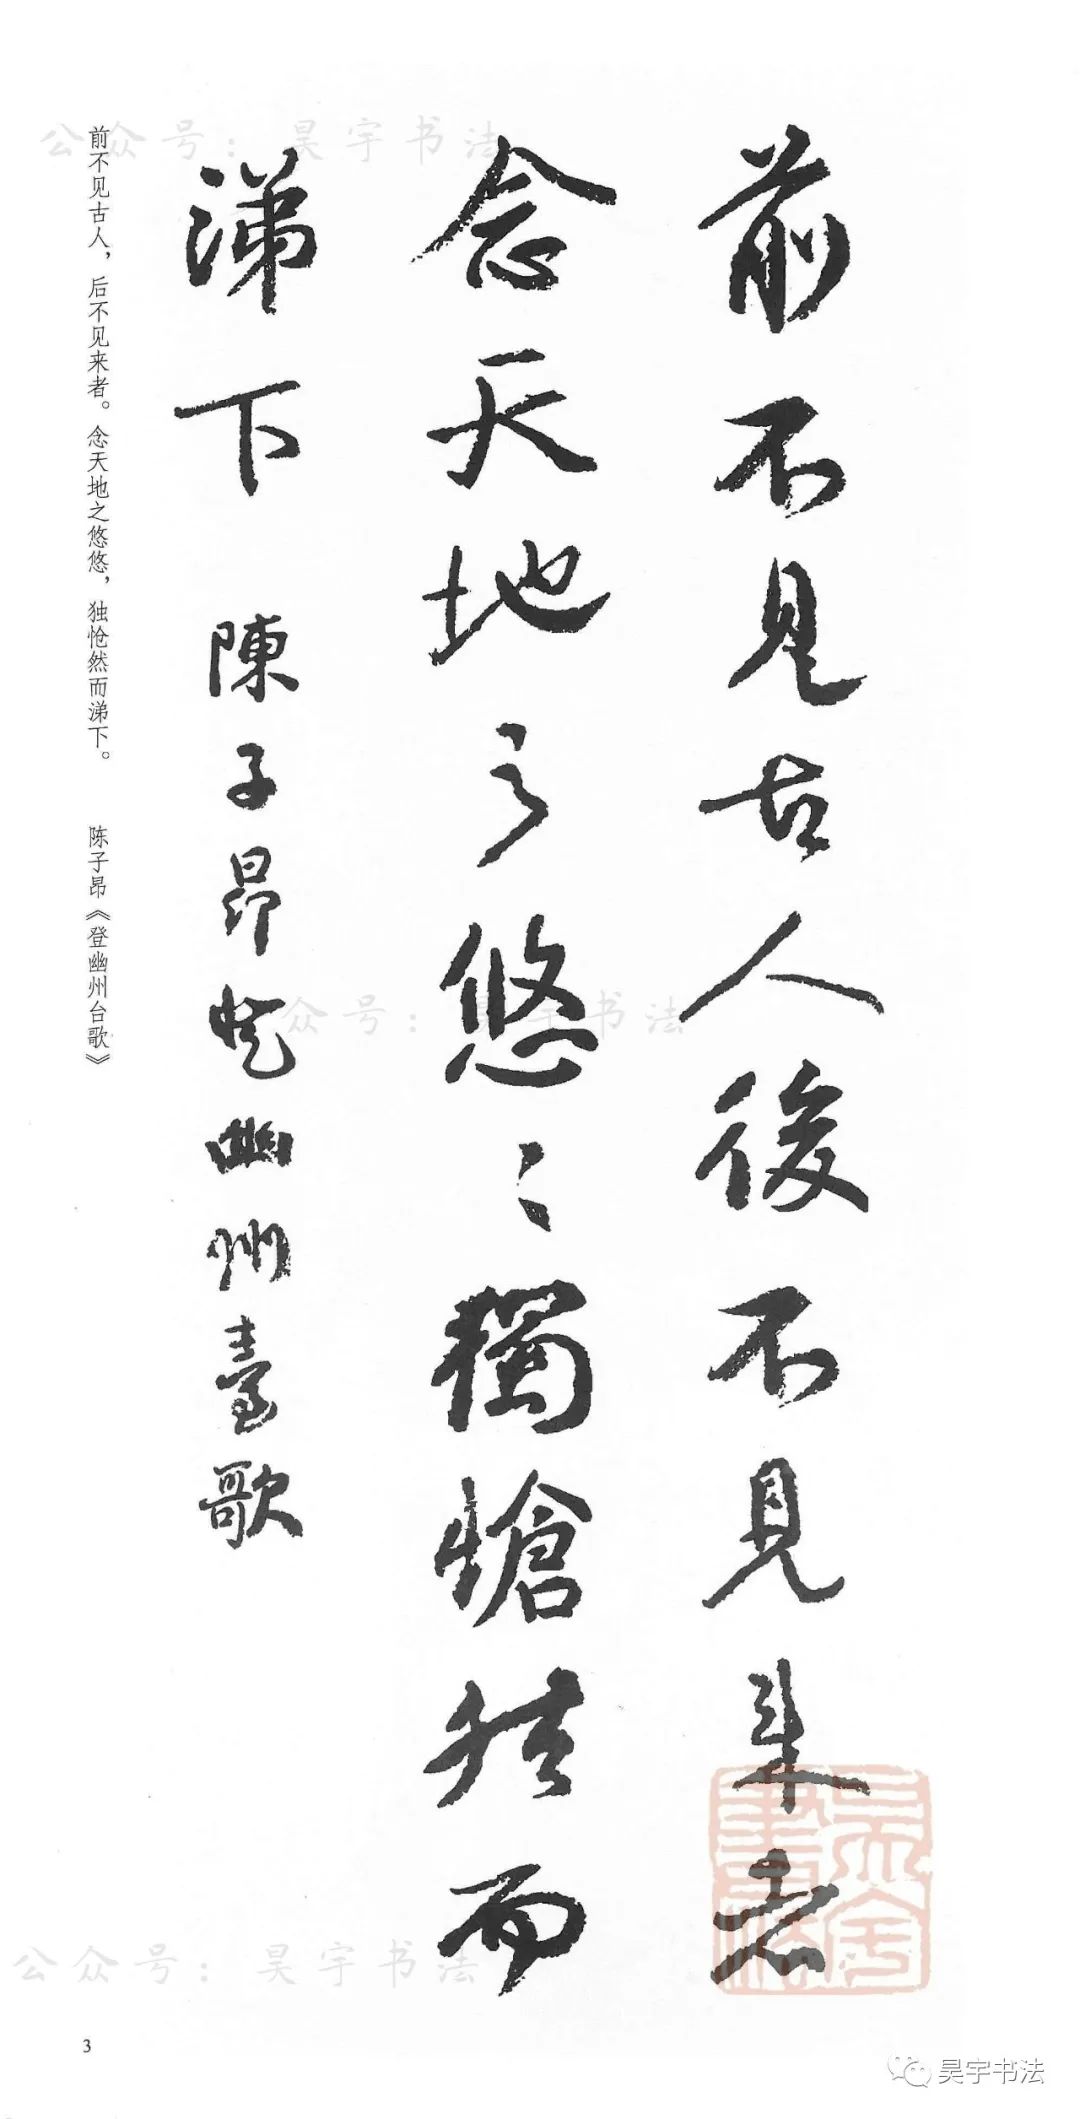 前不見古人後不見来者
念天地之悠〻獨愴然而
涕下 陳子昂登幽州臺歌
前不见古人，后不见来者。念天地之悠悠，独怆然而涕下。 陈子昂《登幽州台歌》
公众号：昊宇书法
众号：昊宇书法
公众号：昊宇书法
昊宇書法
3
昊宇书法